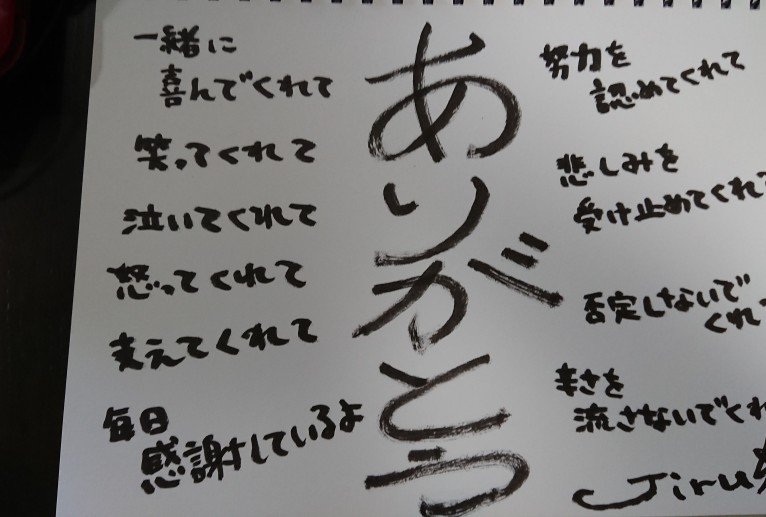 一緒に
喜んでくれて
笑ってくれて
泣いてくれて
怒ってくれて
支えてくれて
毎日
感謝しているよ
ありがとう
努力を
認めてくれて
悲しみを
受け止めてくれて
否定しないで
くれ
辛さを
流さないでくれ
Jiru